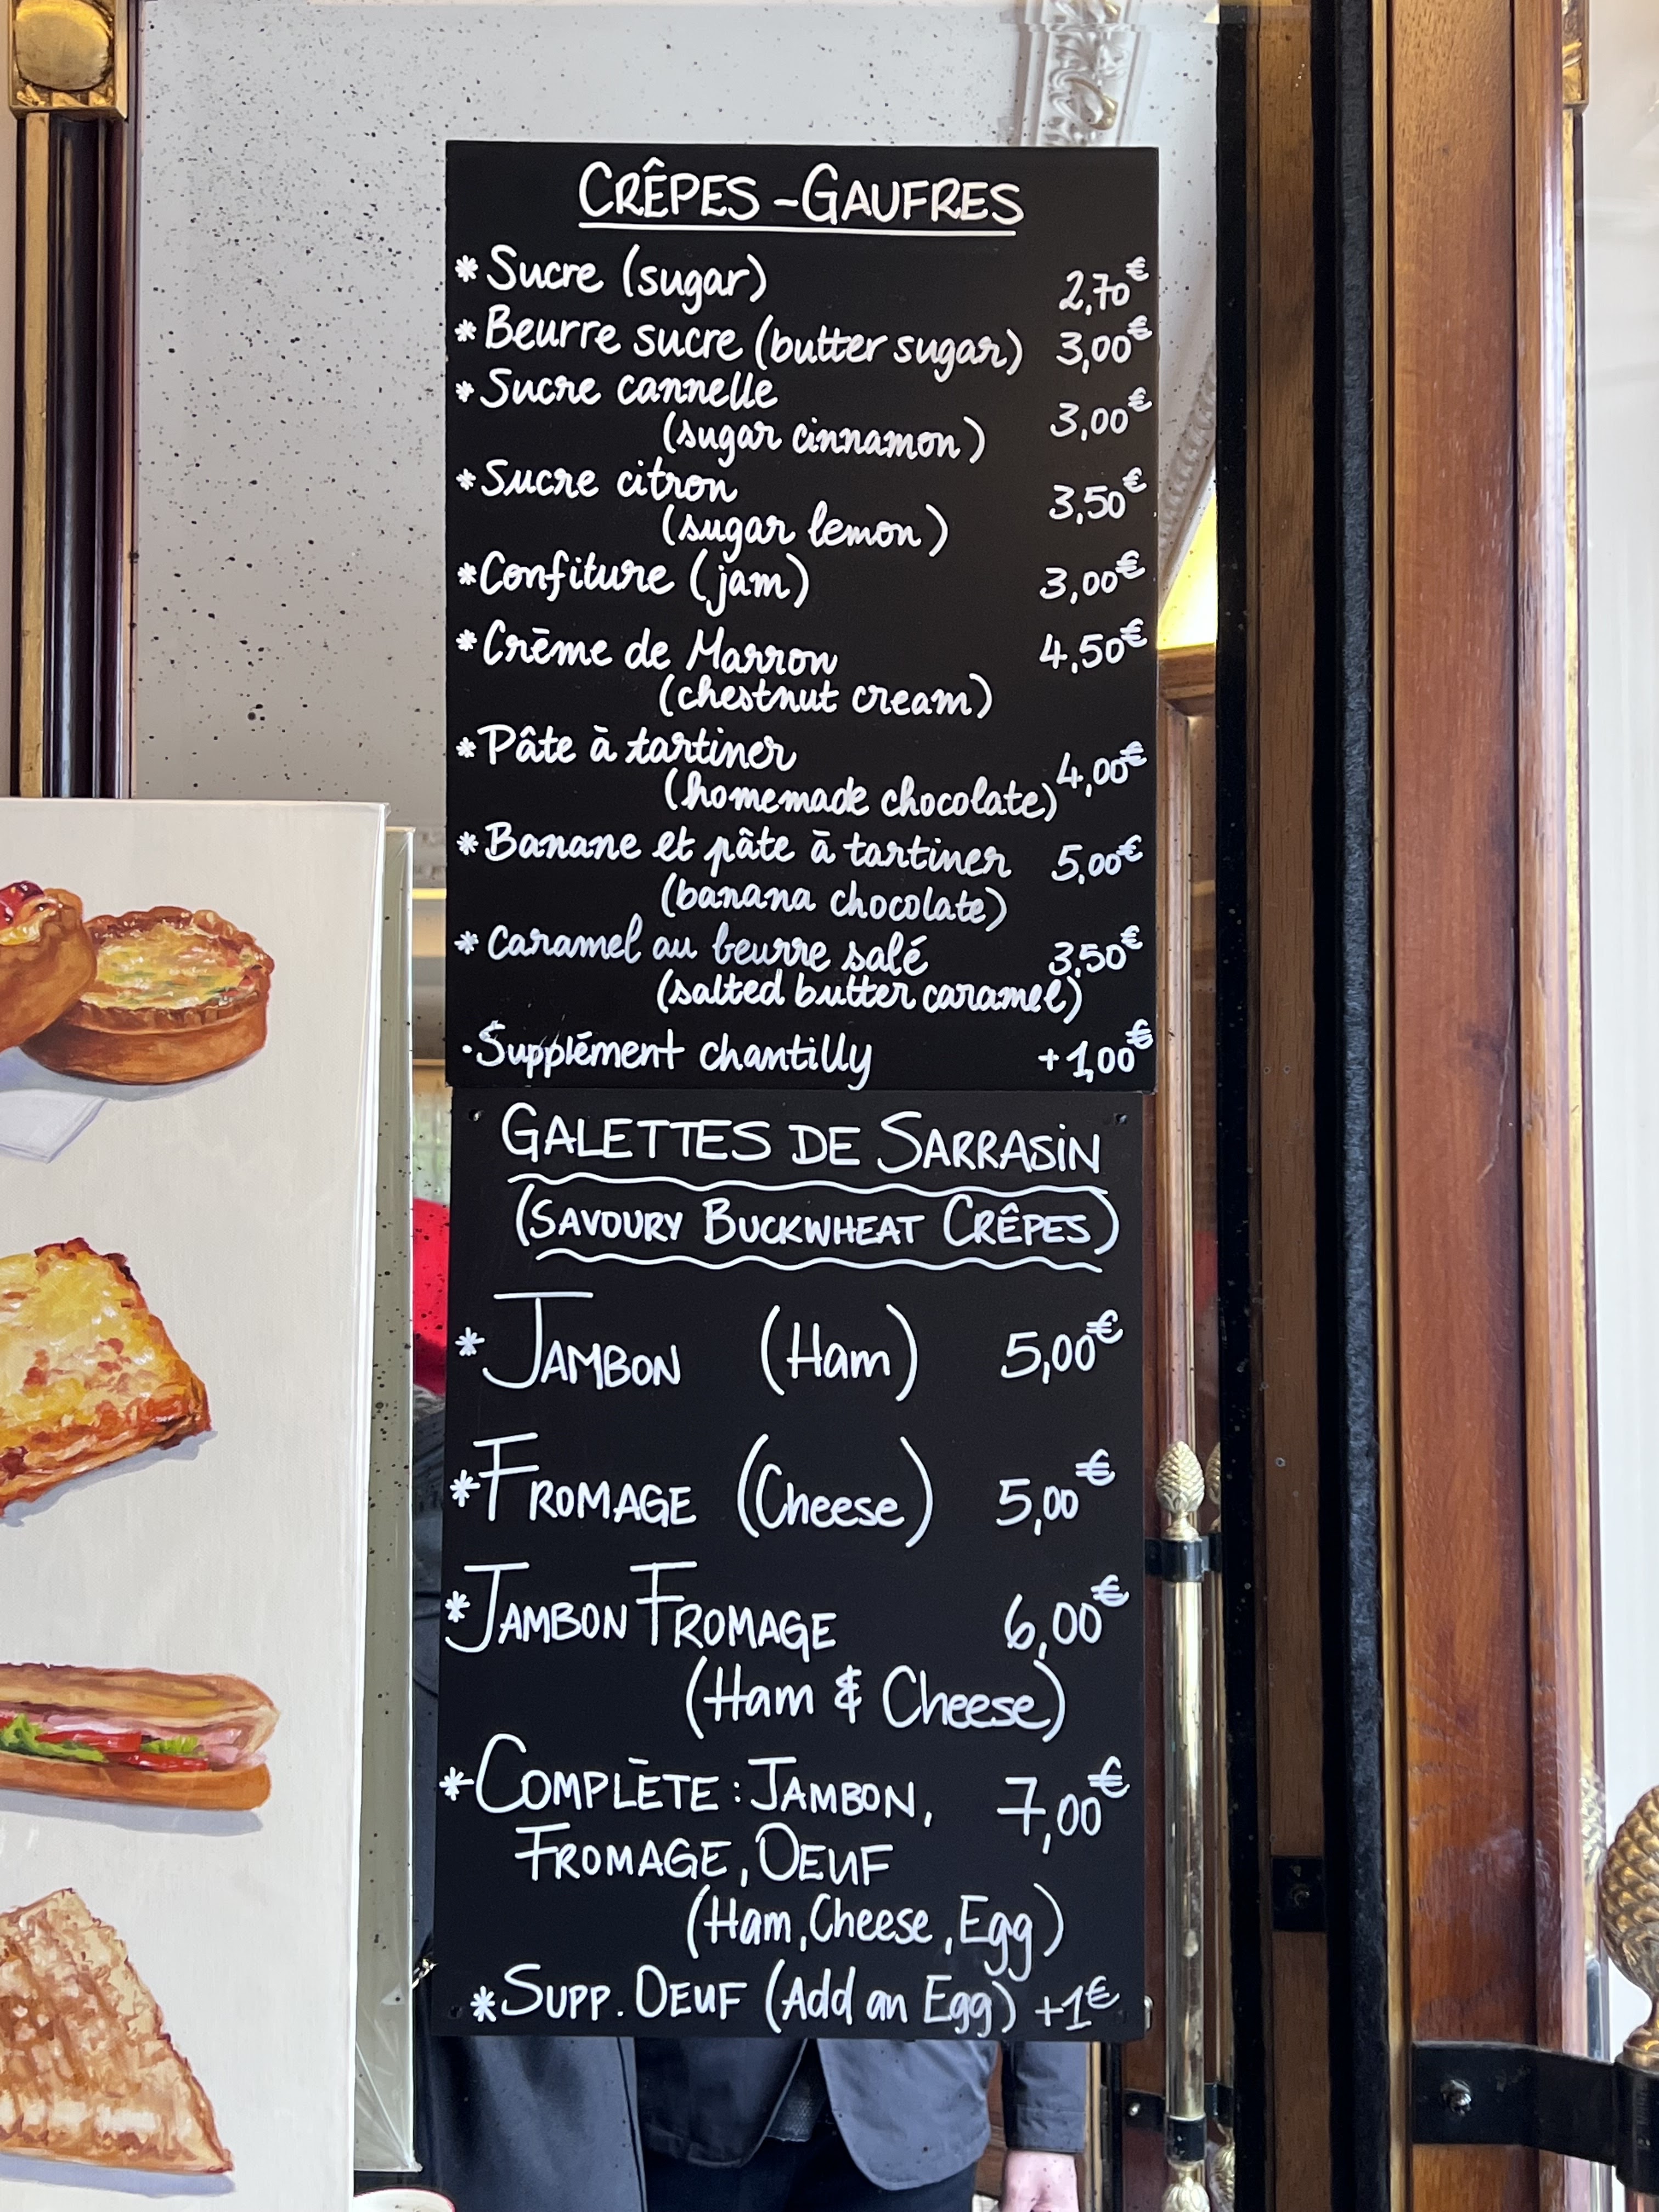 CRÊPES - GAUFRES
* Sucre (sugar) 2,70€
* Beurre sucre (butter sugar) 3,00€
* Sucre cannelle
(sugar cinnamon) 3,00€
* Sucre citron 3,50€
(sugar lemon)
* Confiture (jam) 3,00€
* Crēme de Marron 4,50€
(chestnut cream)
* Pâte à tartiner 4,00€
(homemade chocolate)
* Banane et pâte ā tartiner 5,00€
(banana chocolate)
* Caramel au beurre salé 3,50€
(salted butter caramel)
· Supplément chantilly +1,00€
GALETTES DE SARRASIN
(SAVOURY BUCKWHEAT CRÊPES)
* JAMBON (Ham) 5,00€
* FROMAGE (Cheese) 5,00€
* JAMBON FROMAGE 6,00€
(Ham & Cheese)
* COMPLÈTE : JAMBON, 7,00€
FROMAGE, OEUF
(Ham, Cheese, Egg)
* SUPP. OEUF (Add an Egg) +1€